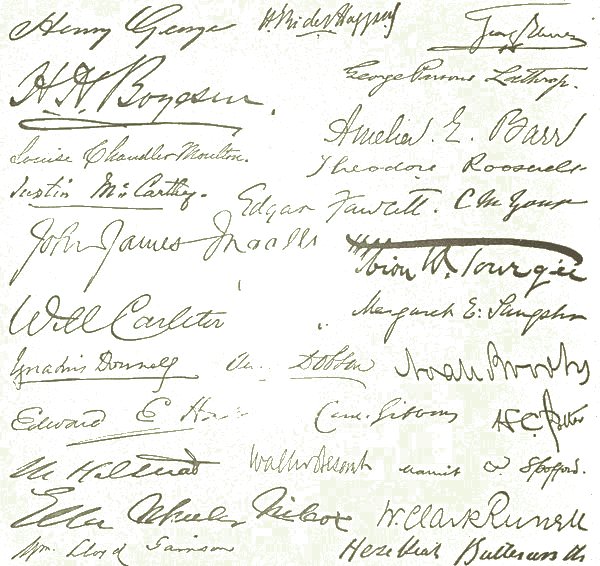 Henry George
H. Rider Haggard
H. H. Boyesen.
George Parsons Lathrop.
Amelia. E. Barr
Louise Chandler Moulton.
Theodore Roosevelt
Justin McCarthy.
Edgar Fawcett. C M Yonge
John James Ingalls
Albion W. Tourgée
Will Carleton
Margaret E. Sangster
Ignatius Donnelly
Dobson
Noah Brooks
Edward E Hale
Card. Gibbons
M Halstead
Walter Besant
Harriet P. Spofford.
Ella Wheeler Wilcox
W. Clark Russell
Wm. Lloyd Garrison
Hezekiah Butterworth